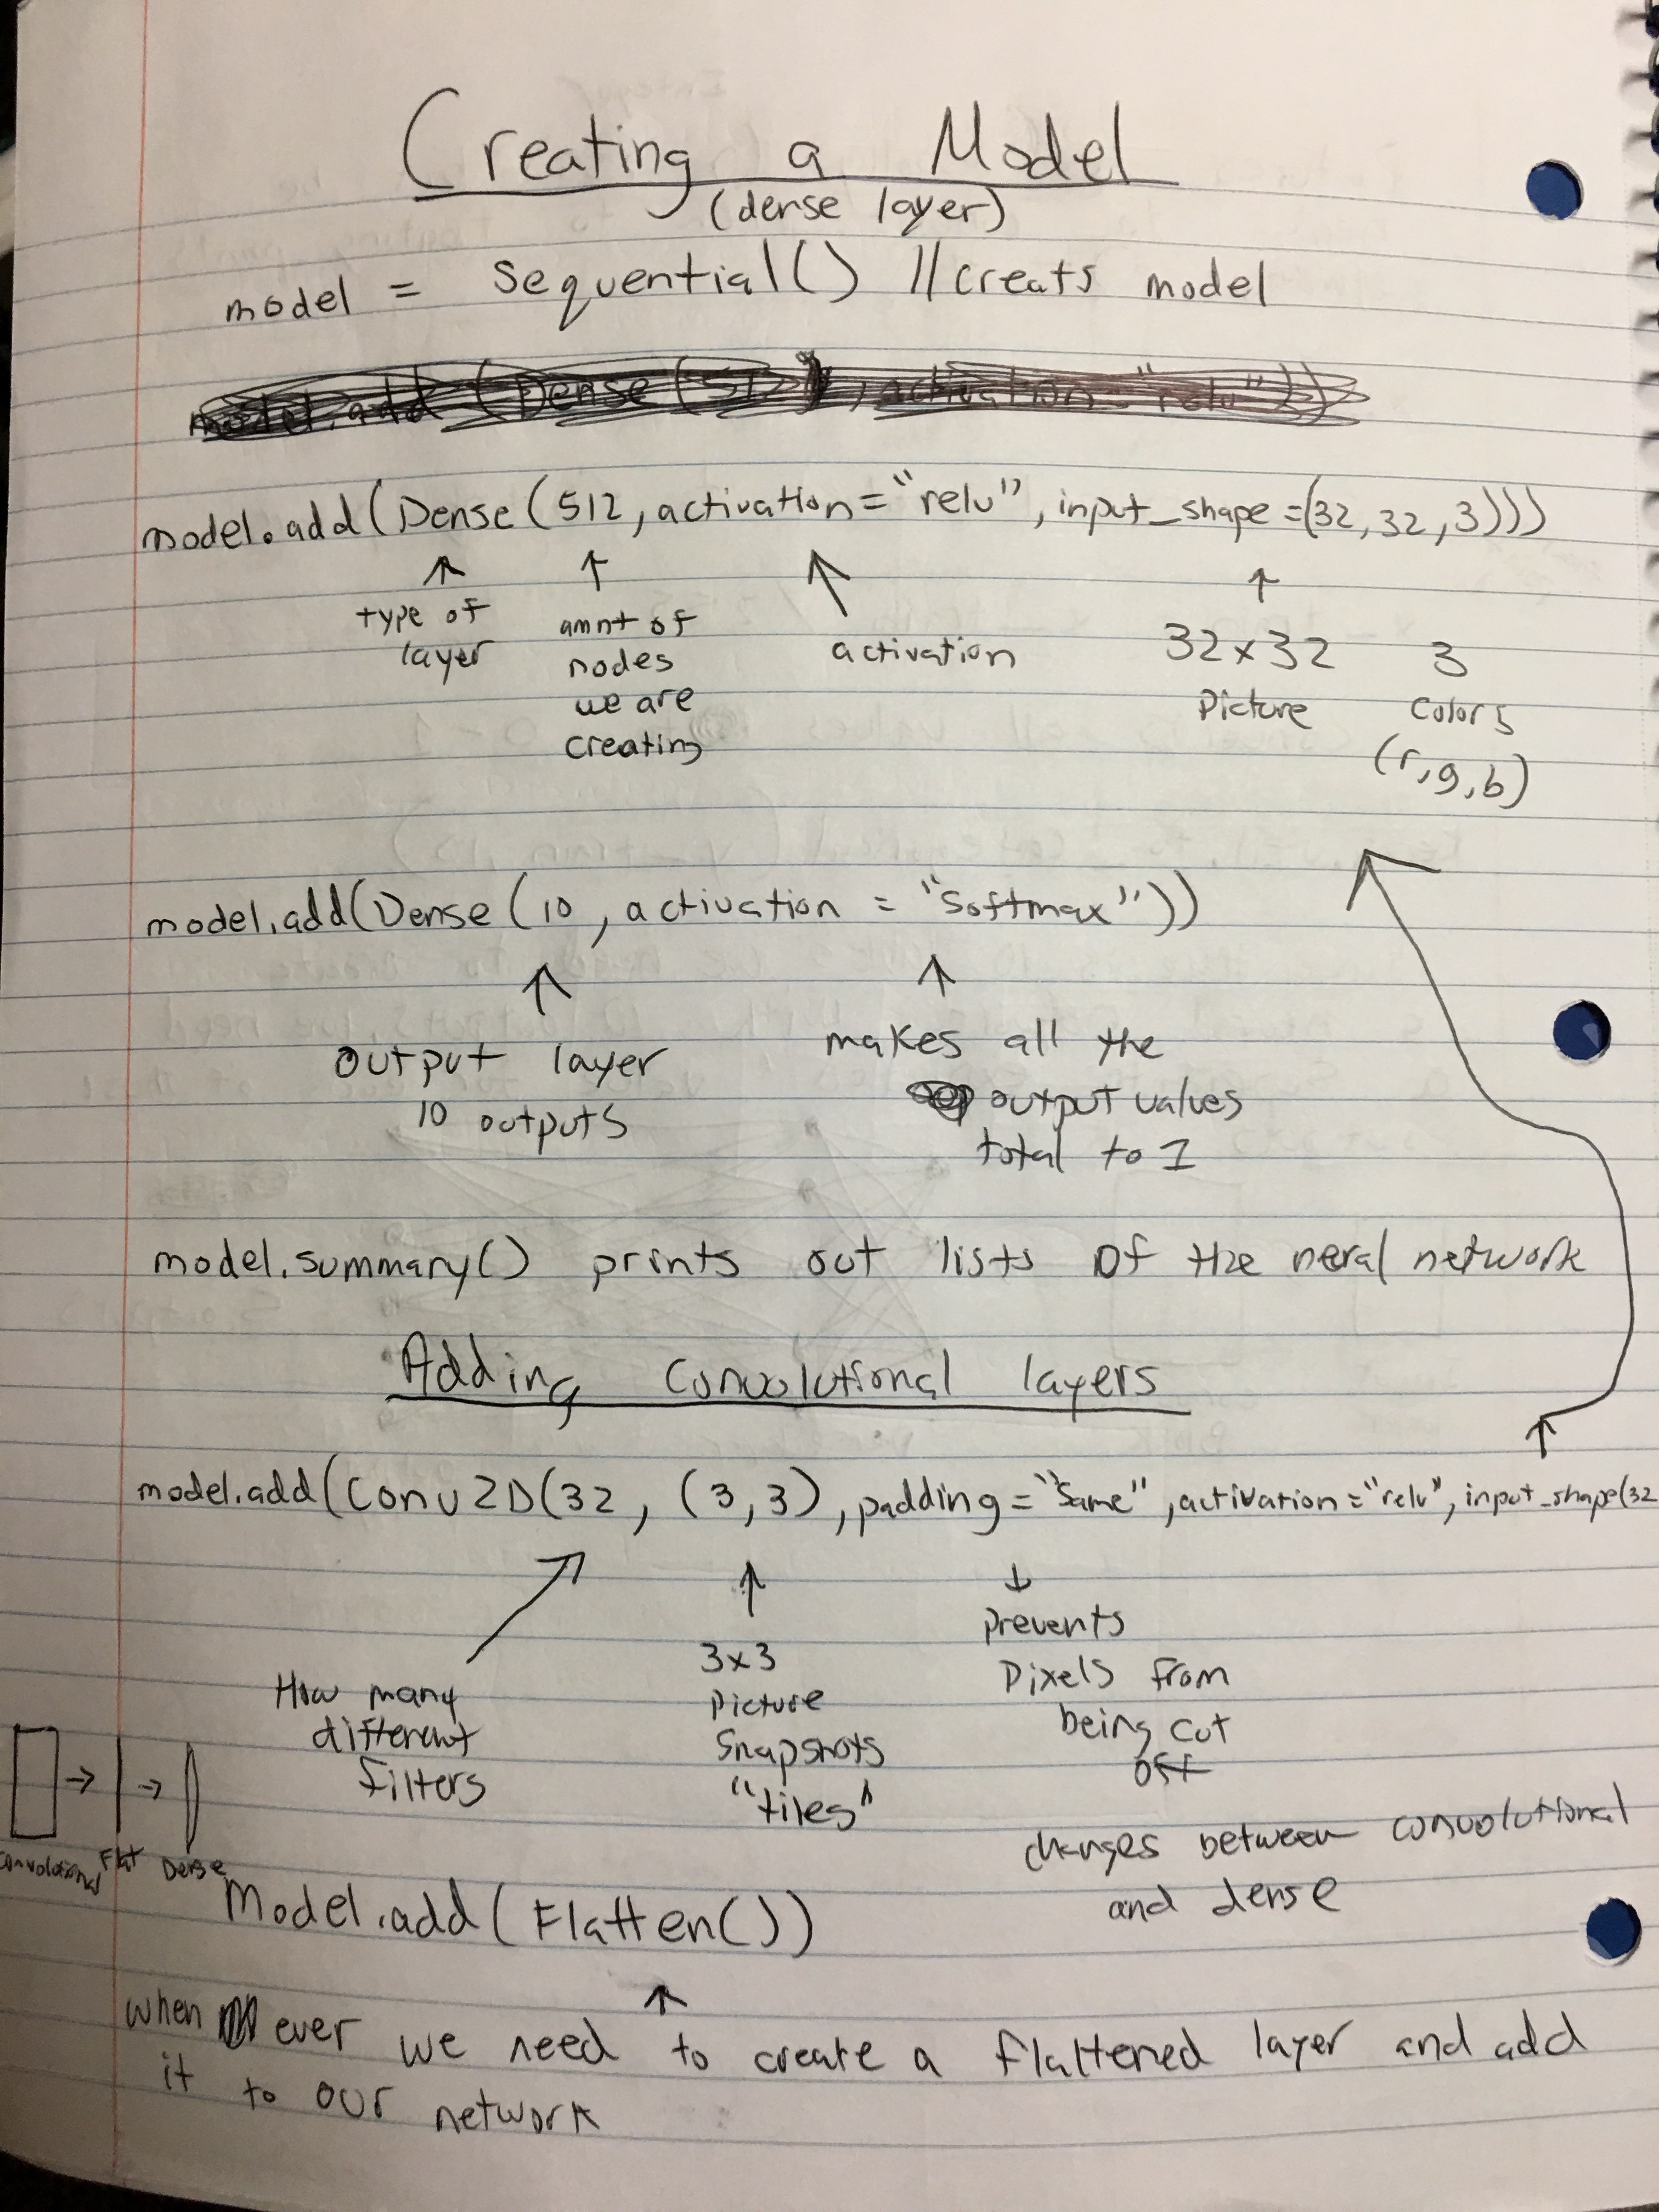 Creating a Model
(dense layer)
model = Sequential() //creats model
model.add(Dense(512, activation="relu"))
model.add(Dense(512, activation="relu", input_shape=(32, 32, 3)))
type of
layer
amnt of
nodes
we are
creating
activation
32x32
Picture
3
colors
(r,g,b)
model.add(Dense(10, activation = "softmax"))
output layer
10 outputs
makes all the
output values
total to 1
model.summary() prints out lists of the neral network
Adding Convolutional layers
model.add(Conv2D(32, (3,3), padding="same", activation="relu", input_shape(32
How many
different
filters
3x3
Picture
Snapshots
"tiles"
prevents
Pixels from
being cut
off
Convolutional Flat Dense
changes between convolutional
and dense
Model.add(Flatten())
when ever we need to create a flattened layer and add
it to our network